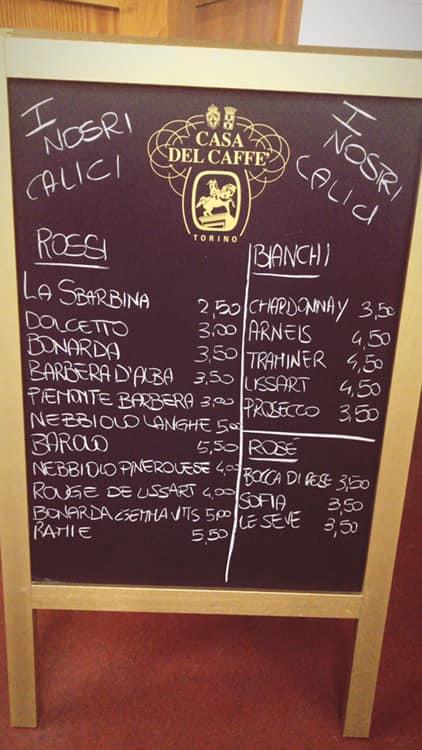 I
NOSRI
CALICI
CASA
DEL CAFFE'
TORINO
I
NOSRI
CALICI
ROSSI
LA SBARBINA 2,50
DOLCETTO 3,00
BONARDA 3,50
BARBERA D'ALBA 3,50
PIEMONTE BARBERA 3,00
NEBBIOLO LANGHE 5,00
BAROLO 5,50
NEBBIOLO PINEROLESE 4,00
ROUGE DE LISSART 4,00
BONARDA GEMMA VITIS 5,00
RAMIE 5,50
BIANCHI
CHARDONNAY 3,50
ARNEIS 4,50
TRAMINER 4,50
LISSART 4,50
PROSECCO 3,50
ROSÉ
BOCCA DI ROSE 3,50
SOFIA 3,50
LE SEVE 3,50